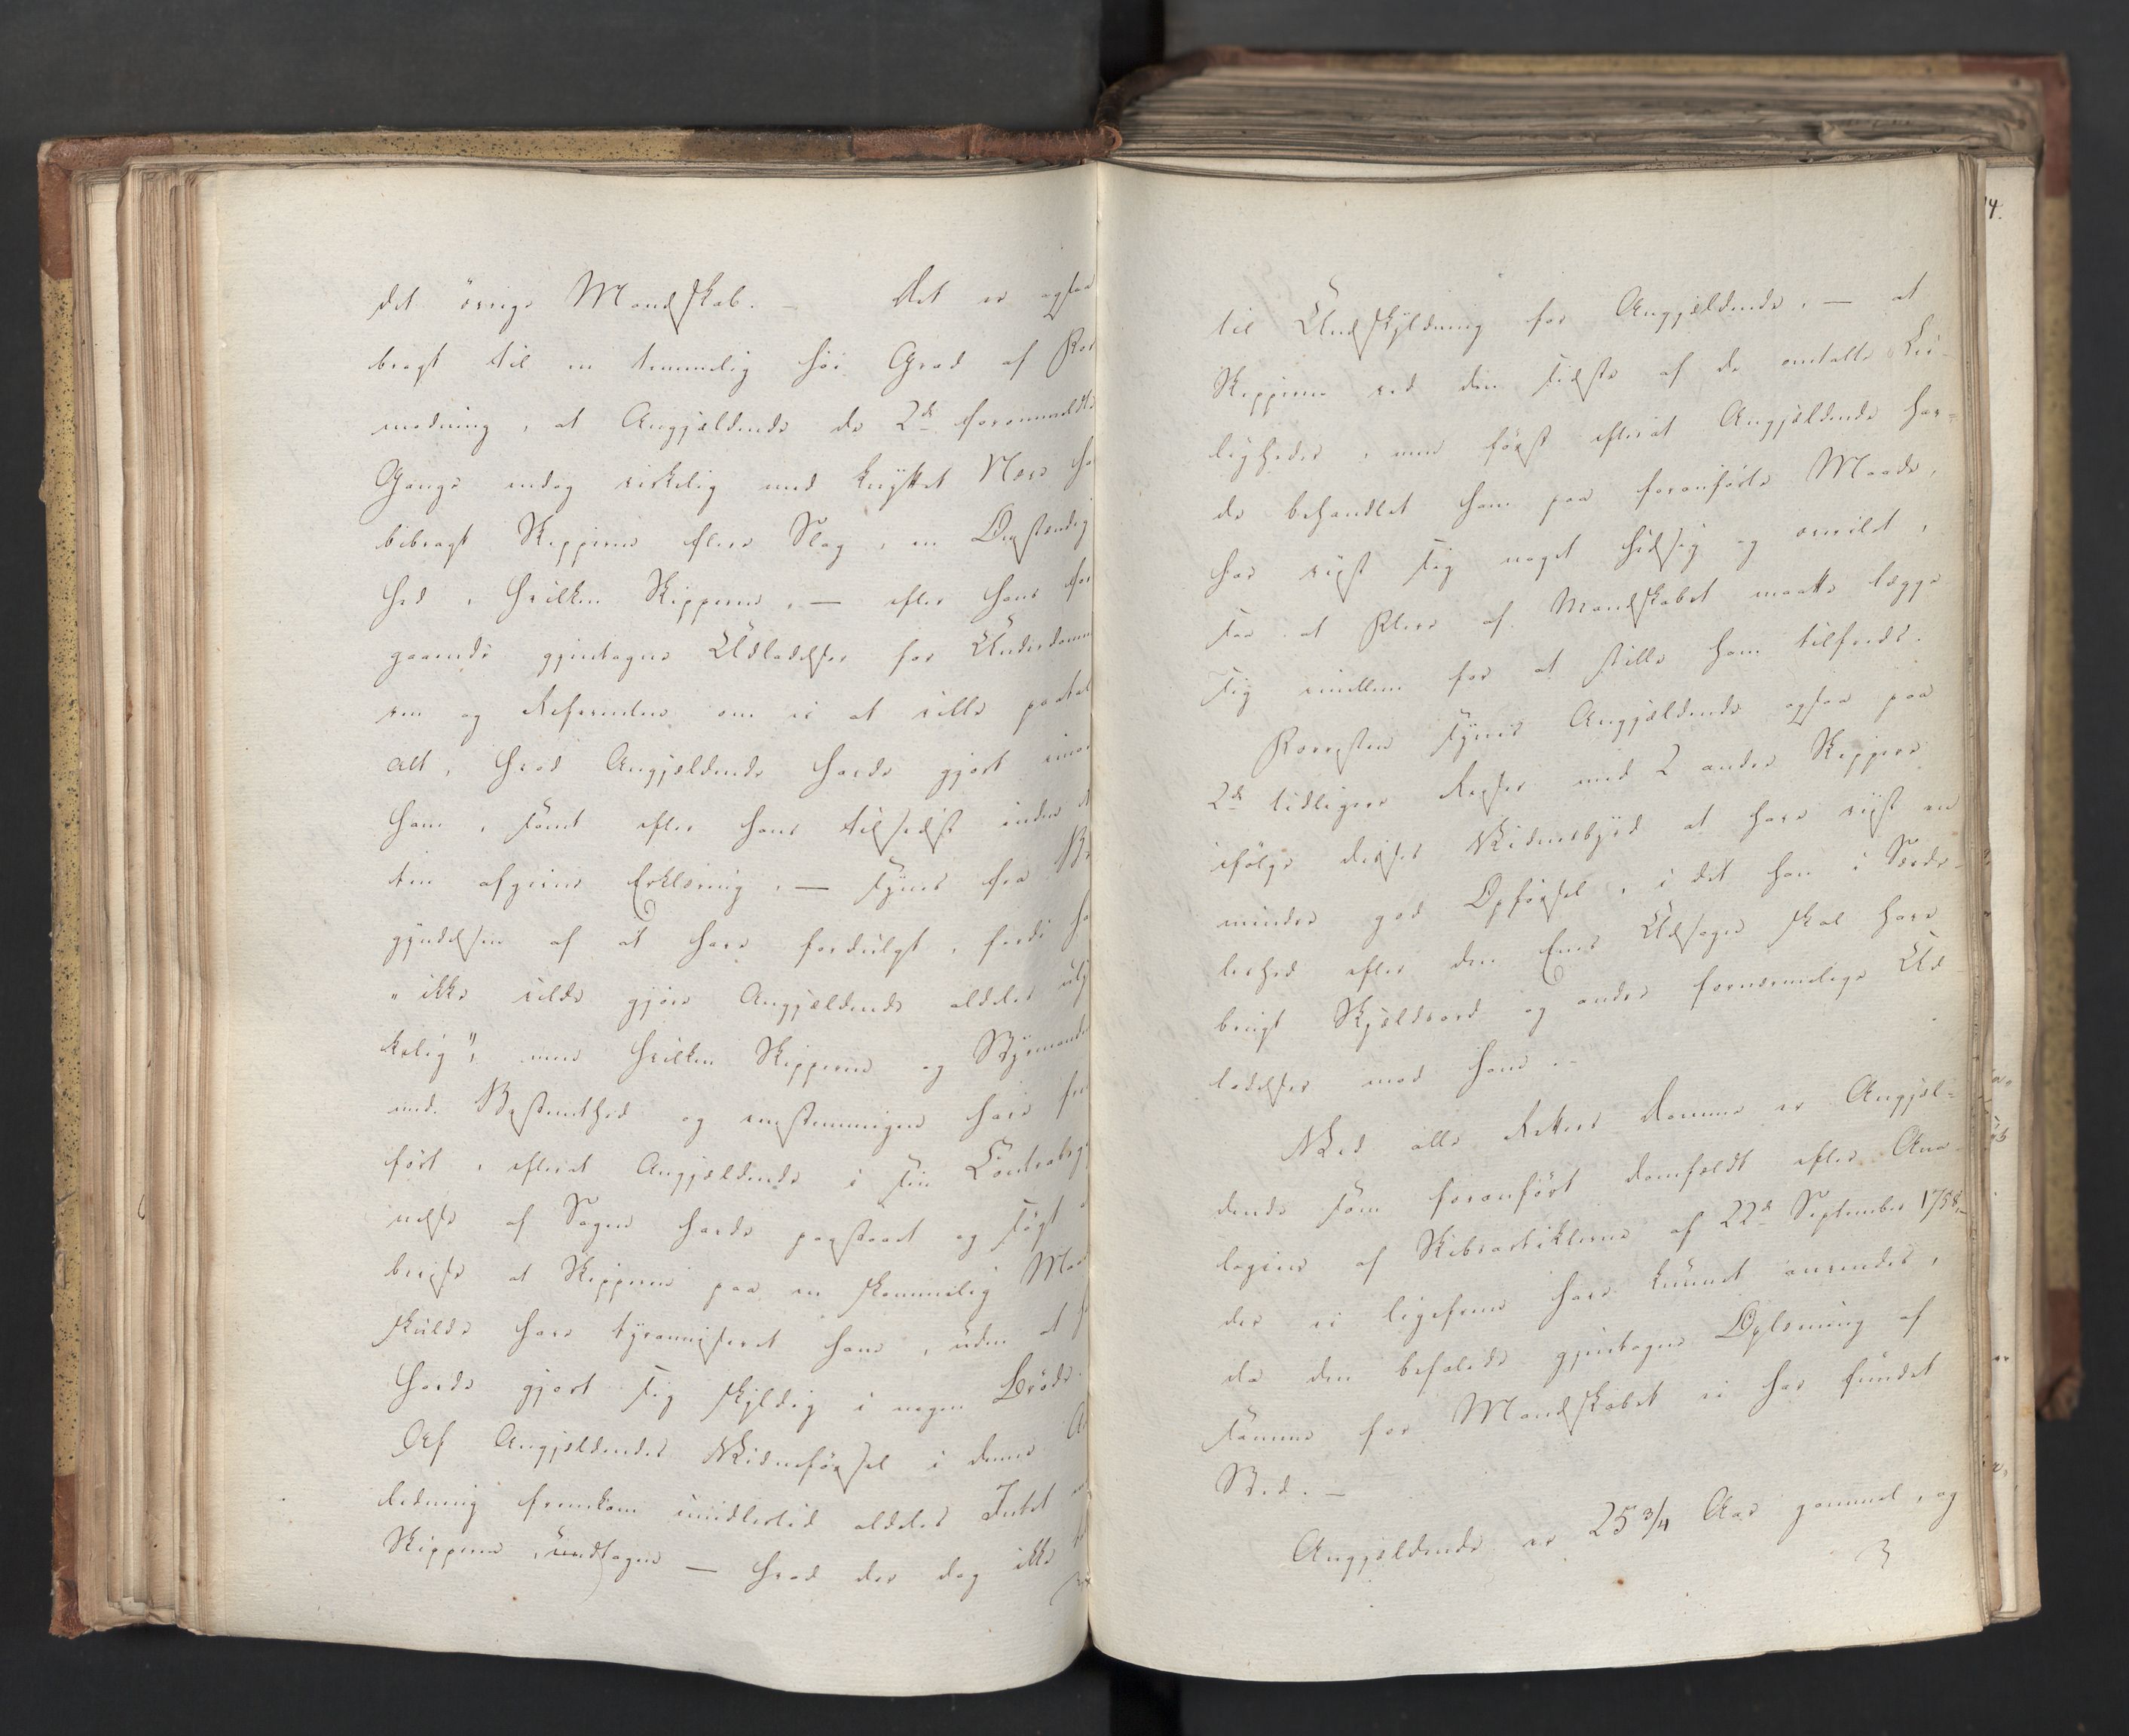 det övrige Mandskab. — Det er ogsaa
bragt til en temmelig höi Grad af For
modning, at Angjældende de 2de forommeldte
Gange endog virkelig med knyttet Næve ha
bibragt Skipperen flere Slag, en Omstændig
hed, hvilken Skipperen, — efter hans for
gaaende gjentagne Udladelser for Underdomm
eren og Referenten om ei at ville paatal
alt, hvad Angjældende havde gjort imod
ham, samt efter hans tilsidst inden
ten afgivne Erklæring, — synes fra Be
gyndelsen af at have fordulgt, fordi ha
"ikke vilde gjöre Angjældende aldeles ulyk
kelig", men hvilken Skipperen og Styrmanden
med Bestemthed og eenstemmigen have frem
fört, efterat Angjældende i sin Contrabevi
nelse af Sagen havde paastaaet og sögt
beviist at Skipperen paa en skammelig Maad
skulde have tyranniseret ham, uden at h
havde gjort sig skyldig i nogen Bröde.
Af Angjældendes Vidneförsel i denne An
ledning fremkom imidlertid aldeles Intet
Skipperen, undtagen — hvad der dog ikke
til Undskyldning for Angjældende, — at
Skipperen ved den sidste af de omtalte Lei-
ligheder, men först efterat Angjældende hav=
de behandlet ham paa foranförte Maade,
har viist sig noget hidsig og onvilet,
saa at Flere af Mandskabet maatte lægge
sig imellem for at stille ham tilfreds.
Forresten synes Angjældende ogsaa paa
2de tidligere Reiser med 2 andre Skippere
ifölge disses Vidnesbyrd at have viist en
mindre god Opförsel, i det han i Særde-
leshed efter den Enes Udsagn skal have
brugt Skjældsord og andre fornærmelige Ud
ladelser mod ham. —
Ved alle Retters Domme er Angjæl=
dende som foranfört domfældt efter Ana-
logien af Skibsartiklerne af 22de September 1758,
der ei ligefrem have kunnet anvendes,
da den befalede gjentagne Oplæsning af
samme for Mandskabet ei har fundet
Sted. —
Angjældende er 25 3/4 Aar gammel, og